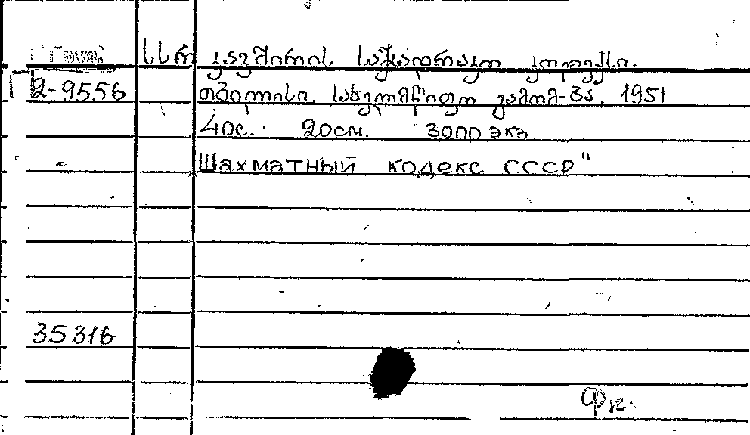 სსრ კავშირის საჭადრაკო კოდექსი.
2-9556 თბილისი, სახელმწიფო გამომ-ბა, 1951
40с. 20см. 3000 экз
Шахматный кодекс СССР"
35316